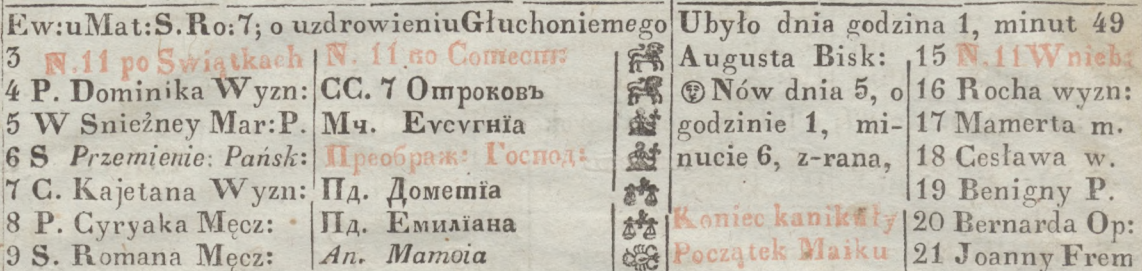 Ew:uMat:S.Ro:7; o uzdrowieniuGłuchoniemego Ubyło dnia godzina 1, minut 49
3 N.11 po Swiątkach N. 11 по Сошест: Augusta Bisk: 15 N.11 Wnieb:
4 P. Dominika Wyzn: СС. 7 Отроковъ Nów dnia 5, o 16 Rocha wyzn:
5 W Snieźney Mar:P. Мч. Еѵсѵгнїа godzinie 1, mi- 17 Mamerta m.
6 S Przemienie: Pańsk: Преображ: Господ: nucie 6, z-rana, 18 Cesława w.
7 C. Kajetana Wyzn: Пд. Дометїа 19 Benigny P.
8 P. Cyryaka Męcz: Пд. Емилїана Koniec kanikuły 20 Bernarda Op:
9 S. Romana Męcz: Ап. Матѳіа Początek Maiku 21 Joanny Frem